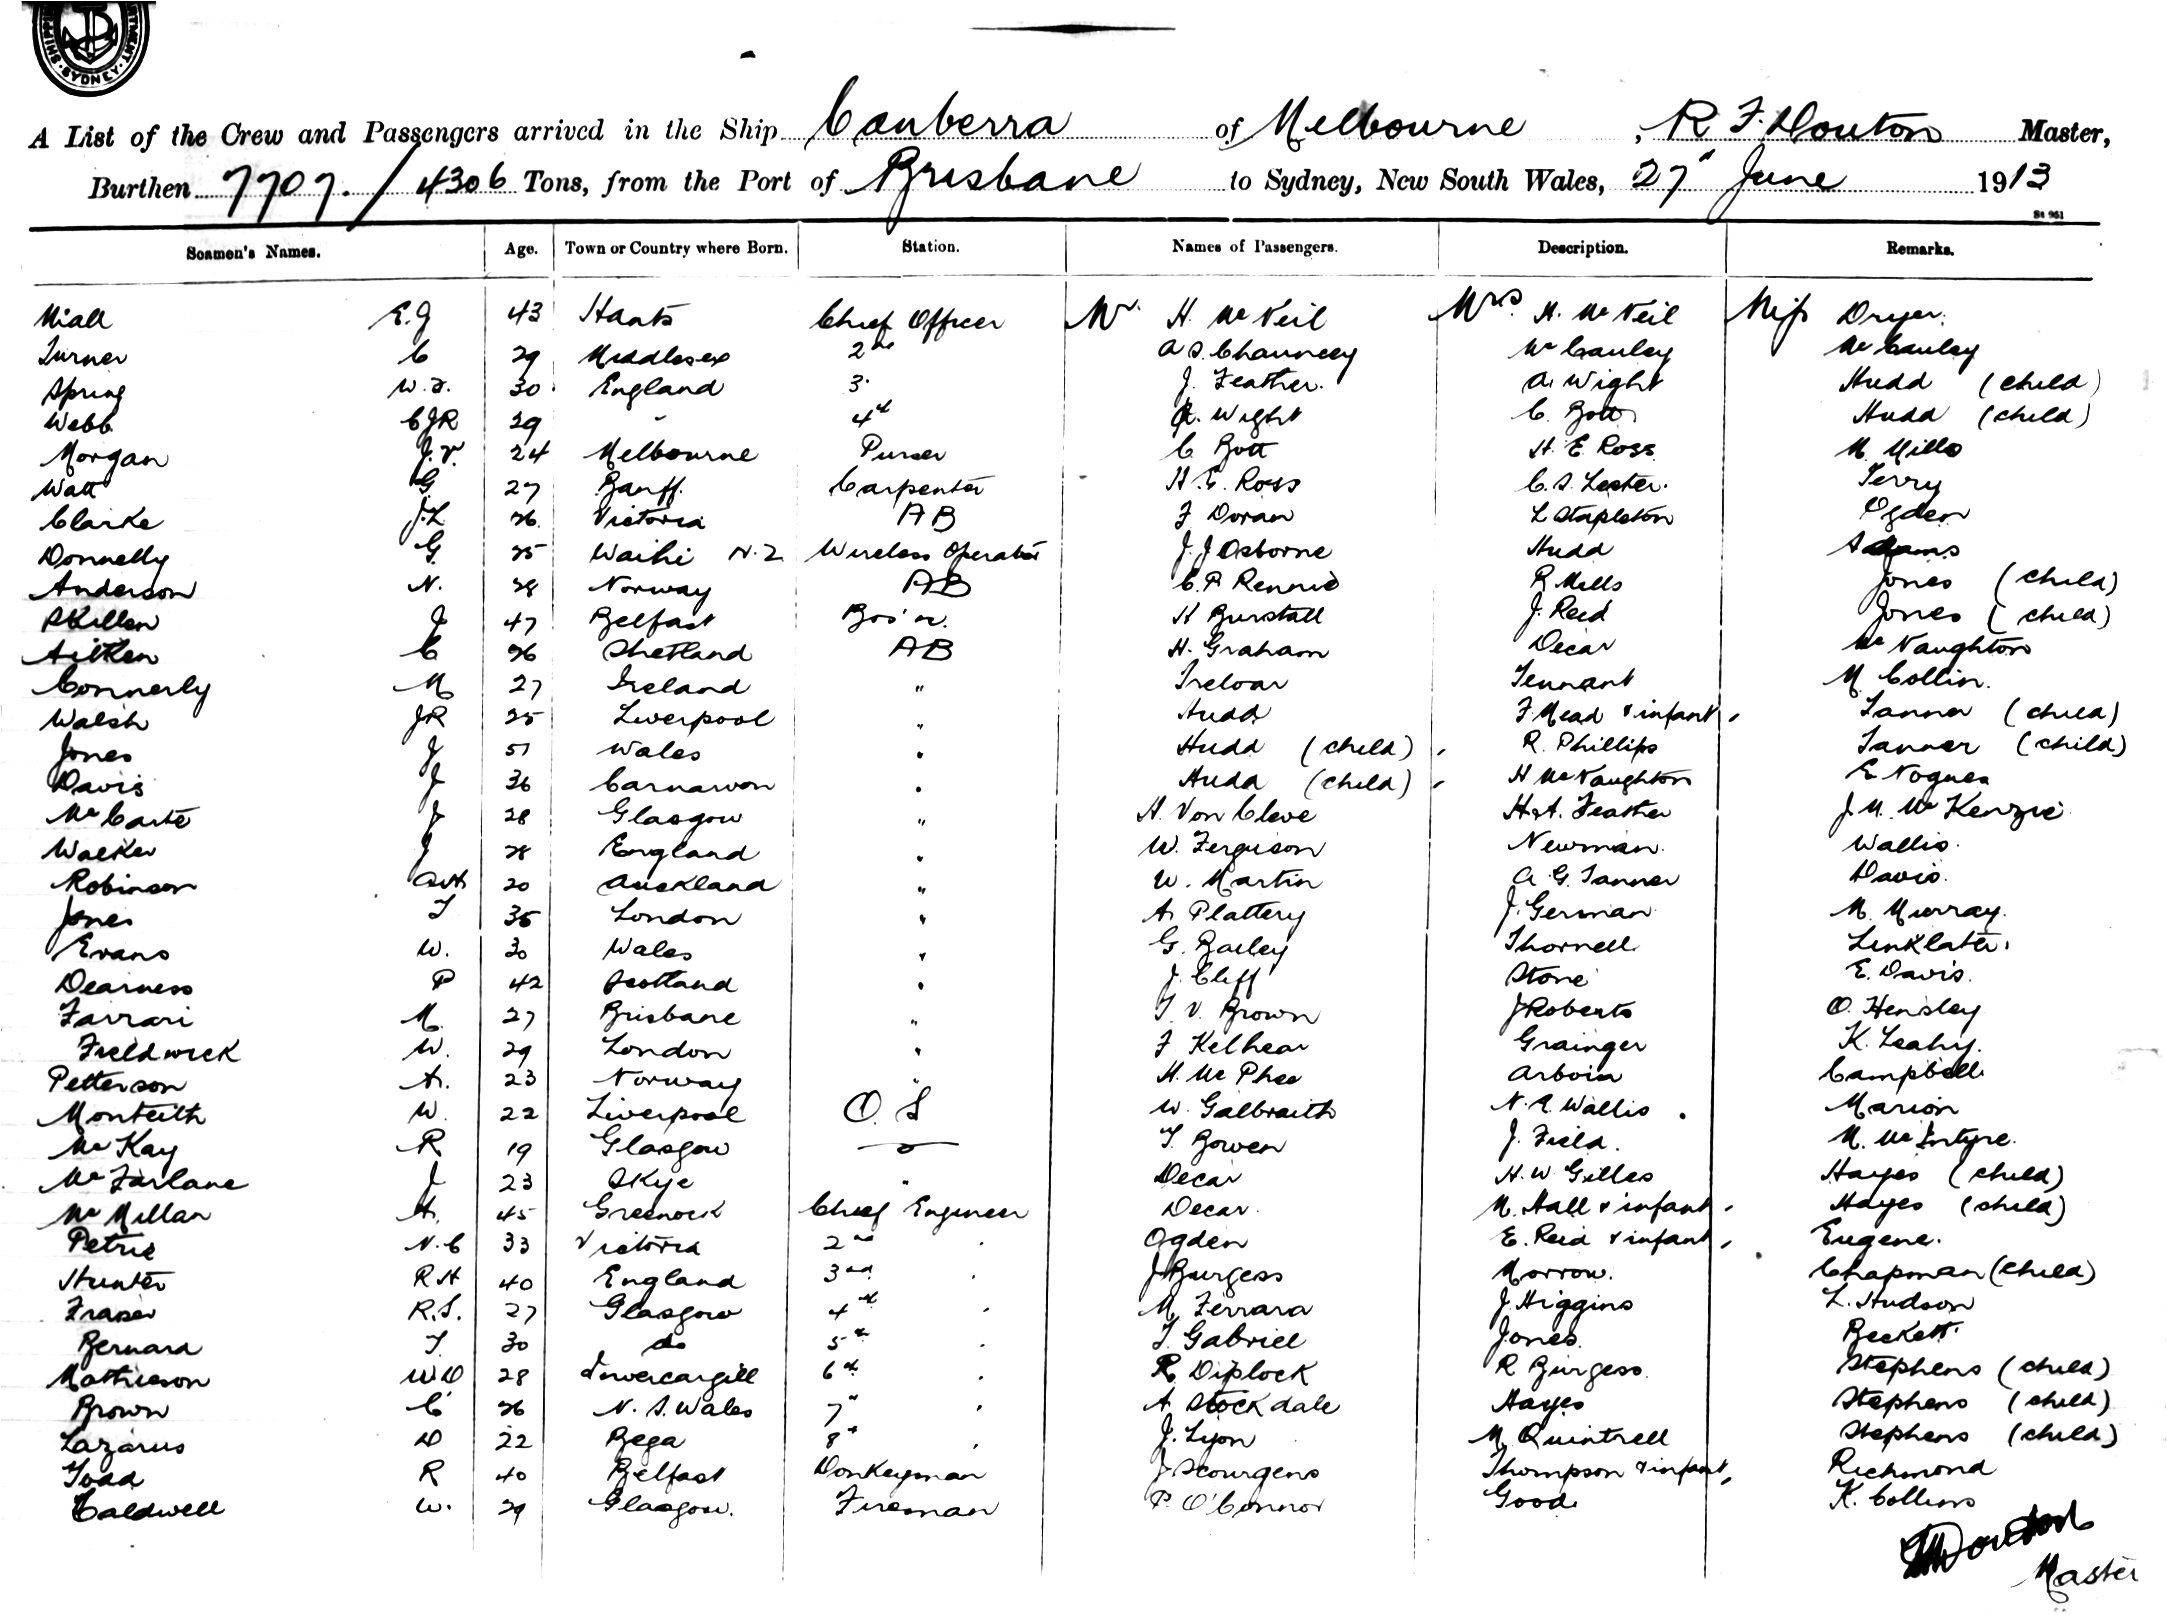 SHIPPING DEPARTMENT SYDNEY
A List of the Crew and Passengers arrived in the Ship Canberra of Melbourne, R F. Douton Master,
Burthen 7707. / 4306 Tons, from the Port of Brisbane to Sydney, New South Wales, 27" June 1913
St 961
Seamen's Names. Age. Town or Country where Born. Station. Names of Passengers. Description. Remarks.
Niall E.J 43 Hants Chief Officer Mr. H. McNeil Mrs. H. McNeil Miss Dryer.
Turner C 29 Middlesex 2nd A S. Chauncey McCauley McCauley
Spring W.T. 30 England 3. J. Feather. A. Wight Hudd (child)
Webb CJR 29 " 4th A. Wight C. Bott Hudd (child)
Morgan J.V. 24 Melbourne Purser C Bott H. E Ross M. Mills
Watt G 27 Banff. Carpenter H. E. Ross C. S. Lester. Terry
Clarke J.L 26. Victoria AB F Doran L Stapleton Ogden
Donnelly G. 25 Waihi N.Z Wireless Operator J. J Osborne Hudd Adams
Anderson N. 28 Norway AB C. P. Rennie R Mills Jones (child)
Skillen J 47 Belfast Bos'n. H Burstall J. Reid Jones (child)
Aitken C 26 Shetland AB H. Graham Decar McNaughton
Connerly M 27 Ireland " Treloar Tennant M. Collin.
Walsh JR 25 Liverpool " Hudd F Mead & infant Tanner (child)
Jones J 51 Wales " Hudd (child) R. Phillips Tanner (child)
Davis J 36 Carnarvon " Hudd (child) H McNaughton E Nogues
McCarte J 28 Glasgow " H. Von Cleve H.A. Feather J. M. McKenzie
Walker J 28 England " W. Ferguson Newman. Wallis.
Robinson 20 Auckland " W. Martin A. G. Tanner Davis.
Jones T 35 London " A. Plattery J. German M. Murray.
Evans W. 30 Wales " G. Bailey Thornell. Linklater.
Dearness P 42 Scotland " J. Cliff Stone E. Davis.
Farrari M. 27 Brisbane " T. V. Brown J Roberts O. Hensley
Fieldwick W. 29 London " F Kelhear Grainger K. Leahy.
Petterson A. 23 Norway " H. McPhee Arboia Campbell
Monteith W. 22 Liverpool O. S W. Galbraith N. E. Wallis. Marion
McKay R 19 Glasgow " T. Bowen J. Field. M. McIntyre.
McFarlane J 23 Skye " Decar H. W Gilles Hayes (child)
McMillan A. 45 Greenock Chief Engineer Decar. M. Hall & infant Hayes (child)
Petrie N.C 33 Victoria 2nd " Ogden E. Reid & infant Eugene.
Hunter R H 40 England 3rd " J Burgess Morrow. Chapman (child)
Fraser R.S. 27 Glasgow 4th " M Ferrara J. Higgins L. Hudson
Bernard T. 30 do 5th " T. Gabriel Jones. Beckett.
Mathieson WD 28 Invercargill 6th " R Diplock R Burgess. Stephens (child)
Brown C 26 N. S. Wales 7" " A Stockdale Hayes Stephens (child)
Lazarus D 22 Bega 8" " J. Lyon M. Quintrell Stephens (child)
Todd R 40 Belfast Donkeyman J Scourgens Thompson & infant, Richmond
Caldwell W. 29 Glasgow. Fireman P. O'Connor Good. K. Collins
Douton
Master